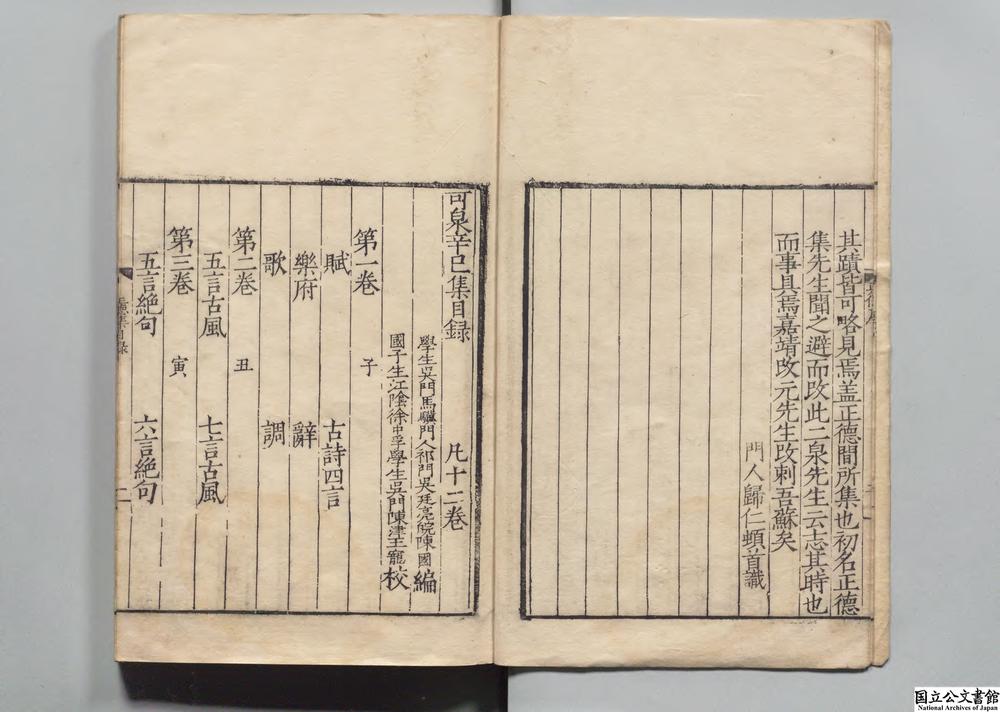 其蹟皆可略見焉盖正德間所集也初名正德
集先生聞之避而改此二泉先生云志其時也
而事具焉嘉靖改元先生改刺吾蘇矣
門人歸仁頓首識
可泉辛巳集目録 凡十二卷
學生吳門馬驥門人祁門吳廷亮皖陳國編
國子生江陰徐中孚學生吳門陳津王寵校
第一卷 子
賦 古詩四言
樂府 辭
歌 調
第二卷 丑
五言古風 七言古風
第三卷 寅
五言絶句 六言絶句
集目録
国立公文書館
National Archives of Japan